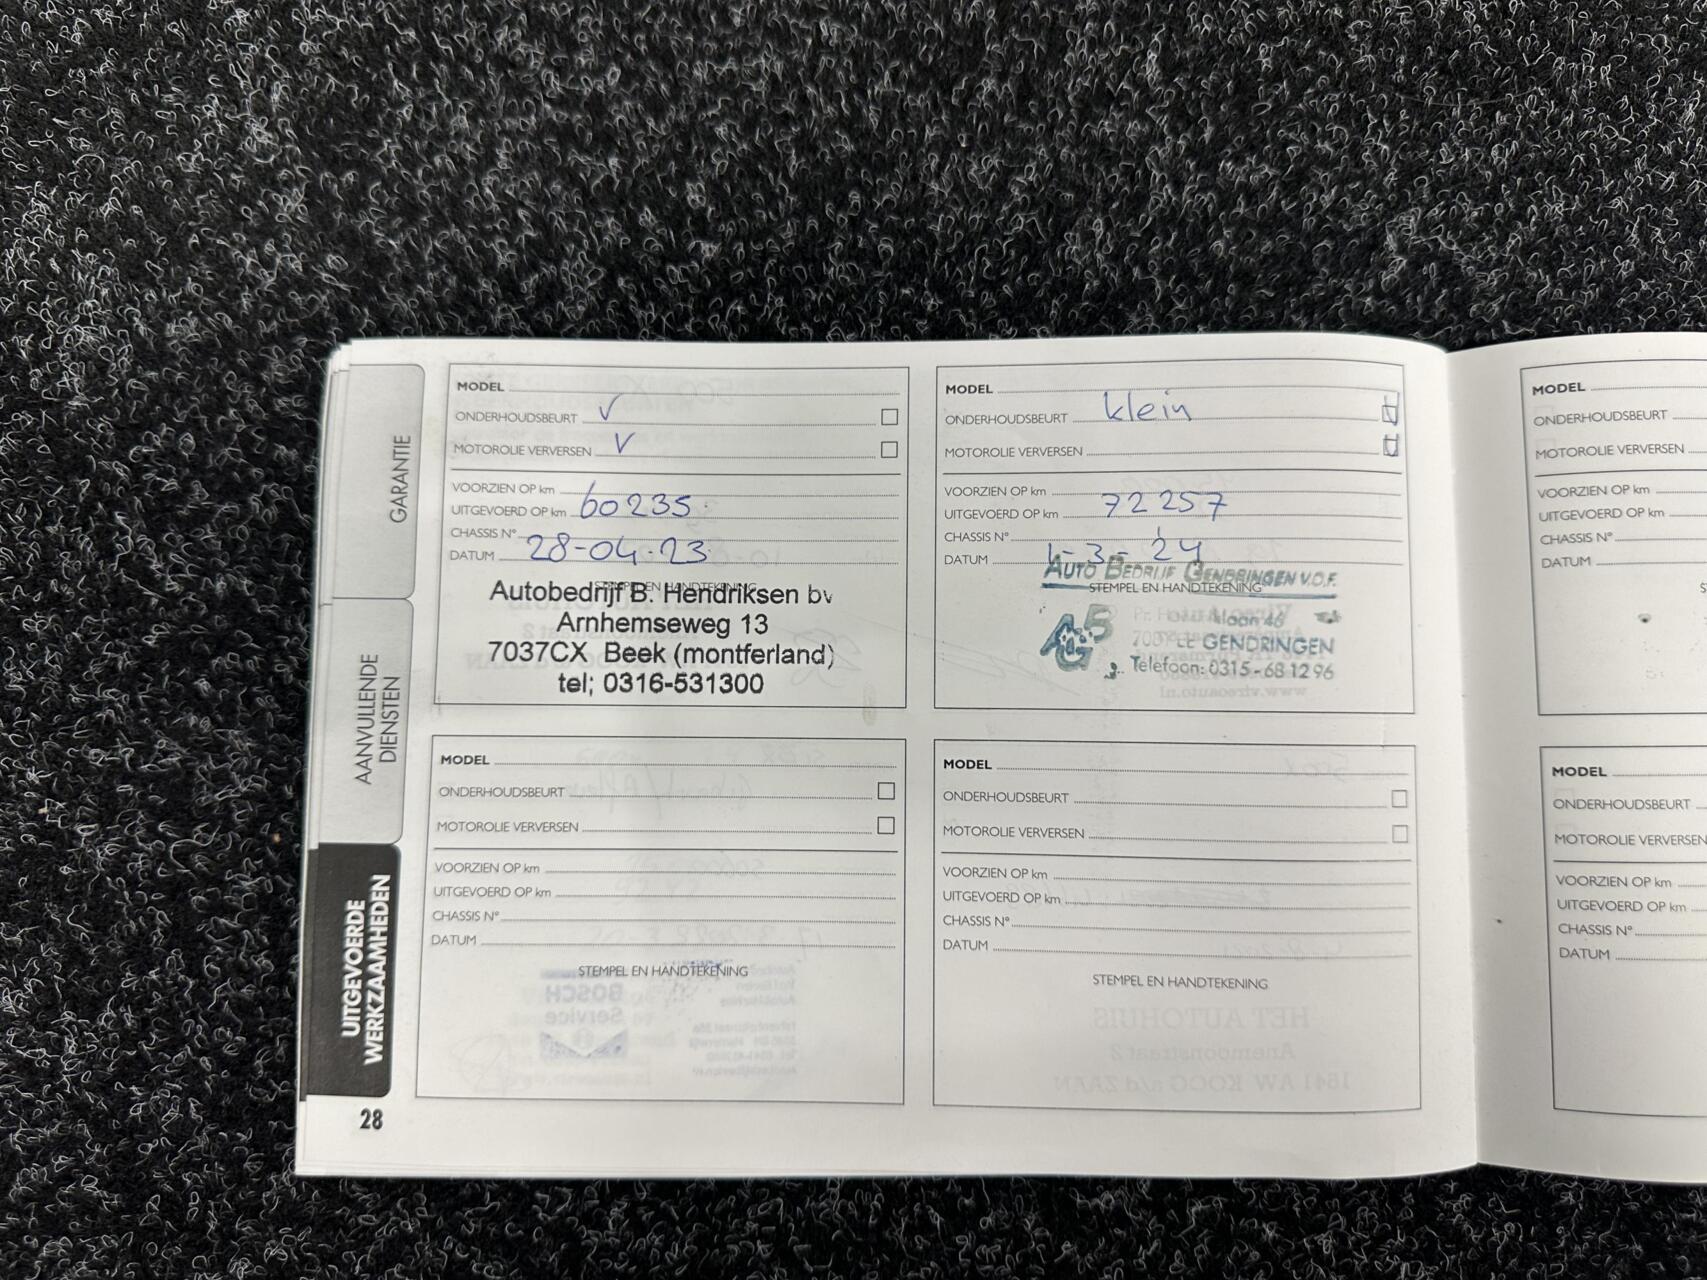 GARANTIE
AANVULLENDE
DIENSTEN
UITGEVOERDE
WERKZAAMHEDEN
28
MODEL
ONDERHOUDSBEURT V
MOTOROLIE VERVERSEN V
VOORZIEN OP km
UITGEVOERD OP km 60235
CHASSIS N°
DATUM 28-04-23
STEMPEL EN HANDTEKENING
Autobedrijf B. Hendriksen bv
Arnhemseweg 13
7037CX Beek (montferland)
tel; 0316-531300
MODEL
ONDERHOUDSBEURT klein
MOTOROLIE VERVERSEN
VOORZIEN OP km
UITGEVOERD OP km 72257
CHASSIS N°
DATUM 1-3-'24
AUTO BEDRIJF GENDRINGEN V.O.F.
STEMPEL EN HANDTEKENING
laan 46
GENDRINGEN
Telefoon: 0315-681296
MODEL
ONDERHOUDSBEURT
MOTOROLIE VERVERSEN
VOORZIEN OP km
UITGEVOERD OP km
CHASSIS N°
DATUM
STEMPEL EN HANDTEKENING
MODEL
ONDERHOUDSBEURT
MOTOROLIE VERVERSEN
VOORZIEN OP km
UITGEVOERD OP km
CHASSIS N°
DATUM
STEMPEL EN HANDTEKENING
MODEL
ONDERHOUDSBEURT
MOTOROLIE VERVERSEN
VOORZIEN OP km
UITGEVOERD OP km
CHASSIS N°
DATUM
MODEL
ONDERHOUDSBEURT
MOTOROLIE VERVERSEN
VOORZIEN OP km
UITGEVOERD OP km
CHASSIS N°
DATUM